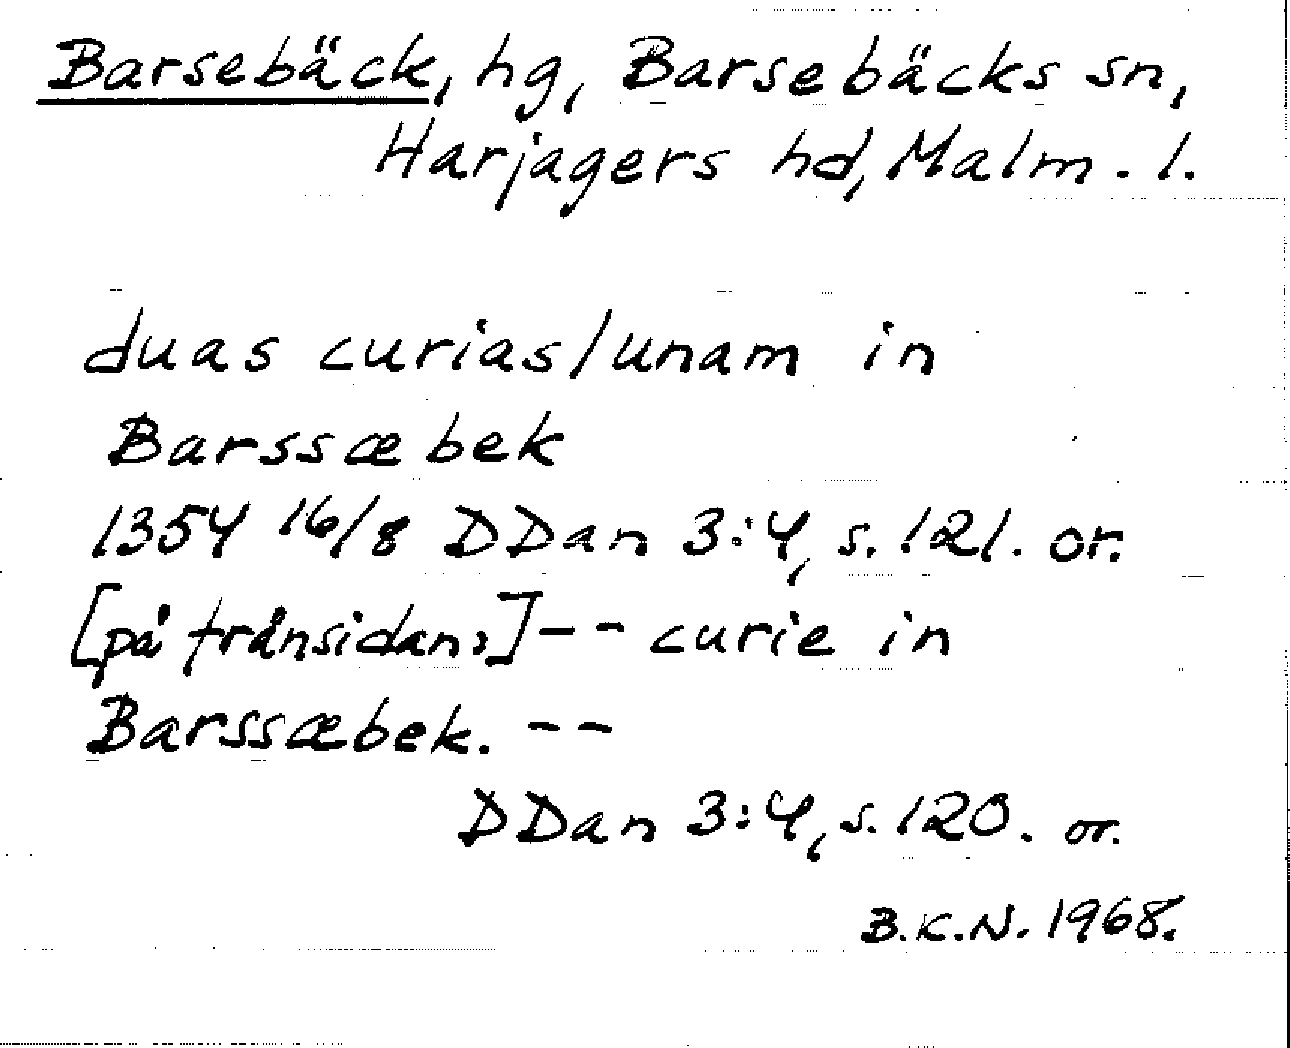 Barsebäck, hg, Barsebäcks sn,
Harjagers hd, Malm. l.
duas curias/unam in
Barssæbek
1354 16/8 DDan 3:4, s. 121. or.
[på frånsidan:] -- curie in
Barssæbek. --
DDan 3:4, s. 120. or.
B.K.N. 1968.